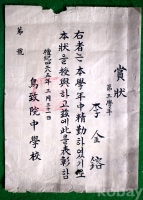 賞狀
第三學年
李金鎔
右者는本學年中精勤하였기
本狀을授與하고玆에此를表彰함
檀紀四二八五年三月二十二日
鳥致院中學校
第 號
kobay